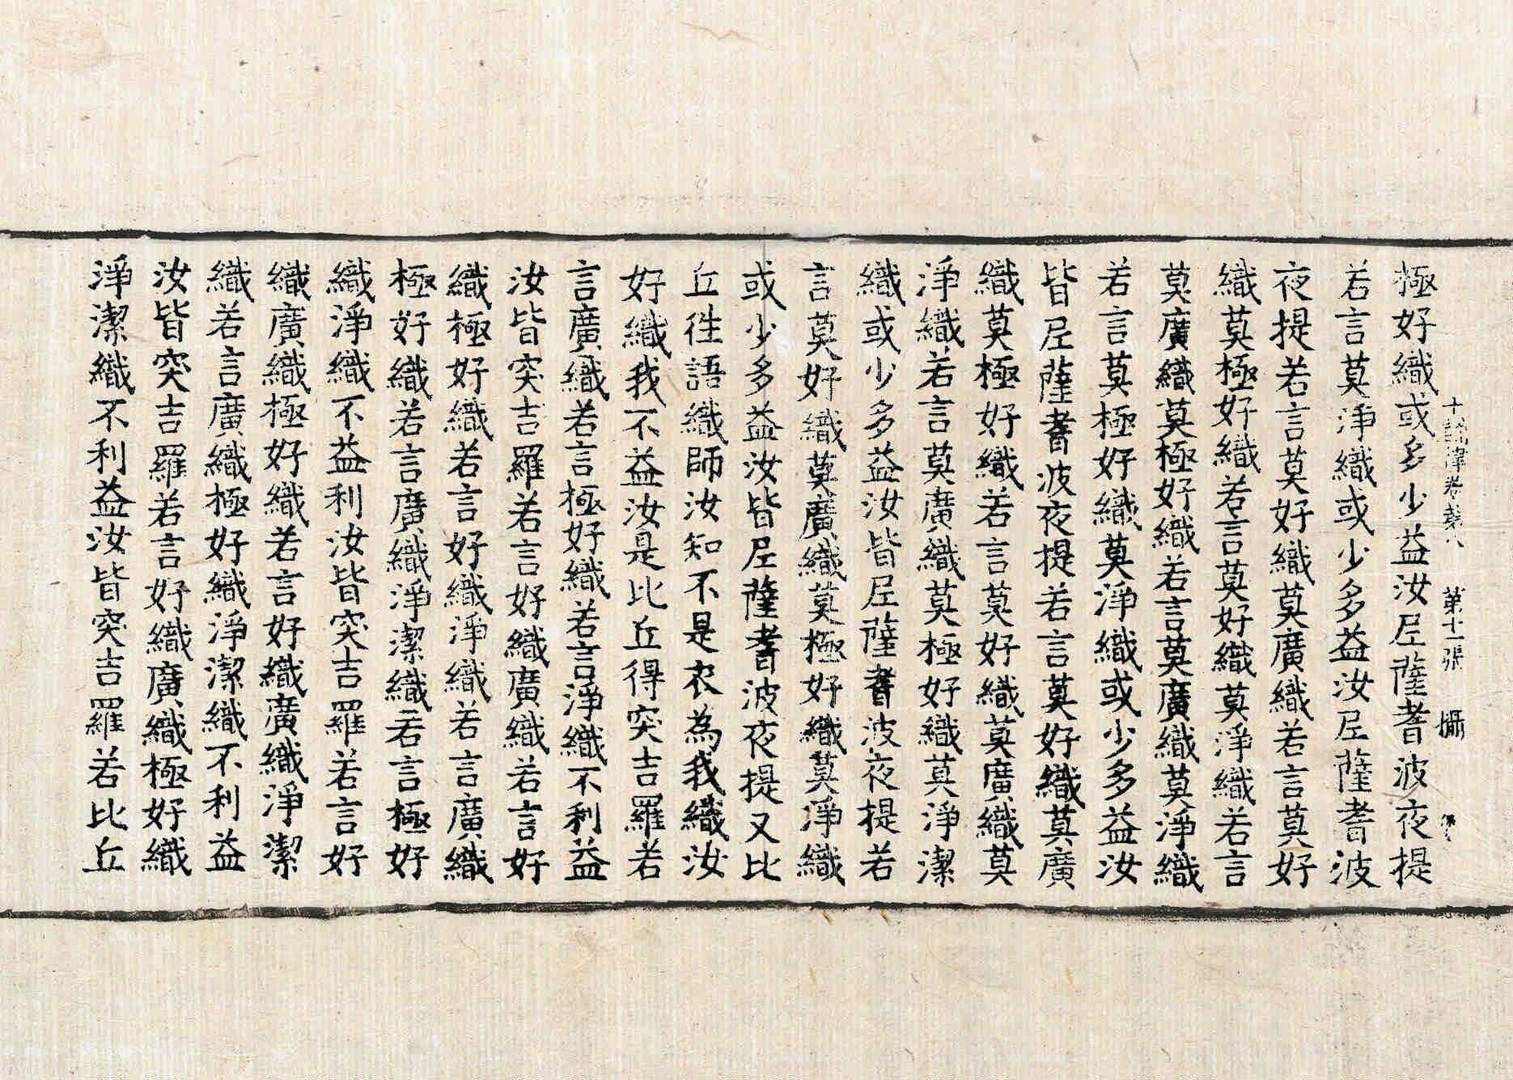 十誦律卷第八 第十一張 攝
極好織或多少益汝尼薩耆波夜提
若言莫淨織或少多益汝尼薩耆波
夜提若言莫好織莫廣織若言莫好
織莫極好織若言莫好織莫淨織若言
莫廣織莫極好織若言莫廣織莫淨織
若言莫極好織莫淨織或少多益汝
皆尼薩耆波夜提若言莫好織莫廣
織莫極好織若言莫好織莫廣織莫
淨織若言莫廣織莫極好織莫淨潔
織或少多益汝皆尼薩耆波夜提若
言莫好織莫廣織莫極好織莫淨織
或少多益汝皆尼薩耆波夜提又比
丘徃語織師汝知不是衣為我織汝
好織我不益汝是比丘得突吉羅若
言廣織若言極好織若言淨織不利益
汝皆突吉羅若言好織廣織若言好
織極好織若言好織淨織若言廣織
極好織若言廣織淨潔織若言極好
織淨織不益利汝皆突吉羅若言好
織廣織極好織若言好織廣織淨潔
織若言廣織極好織淨潔織不利益
汝皆突吉羅若言好織廣織極好織
淨潔織不利益汝皆突吉羅若比丘